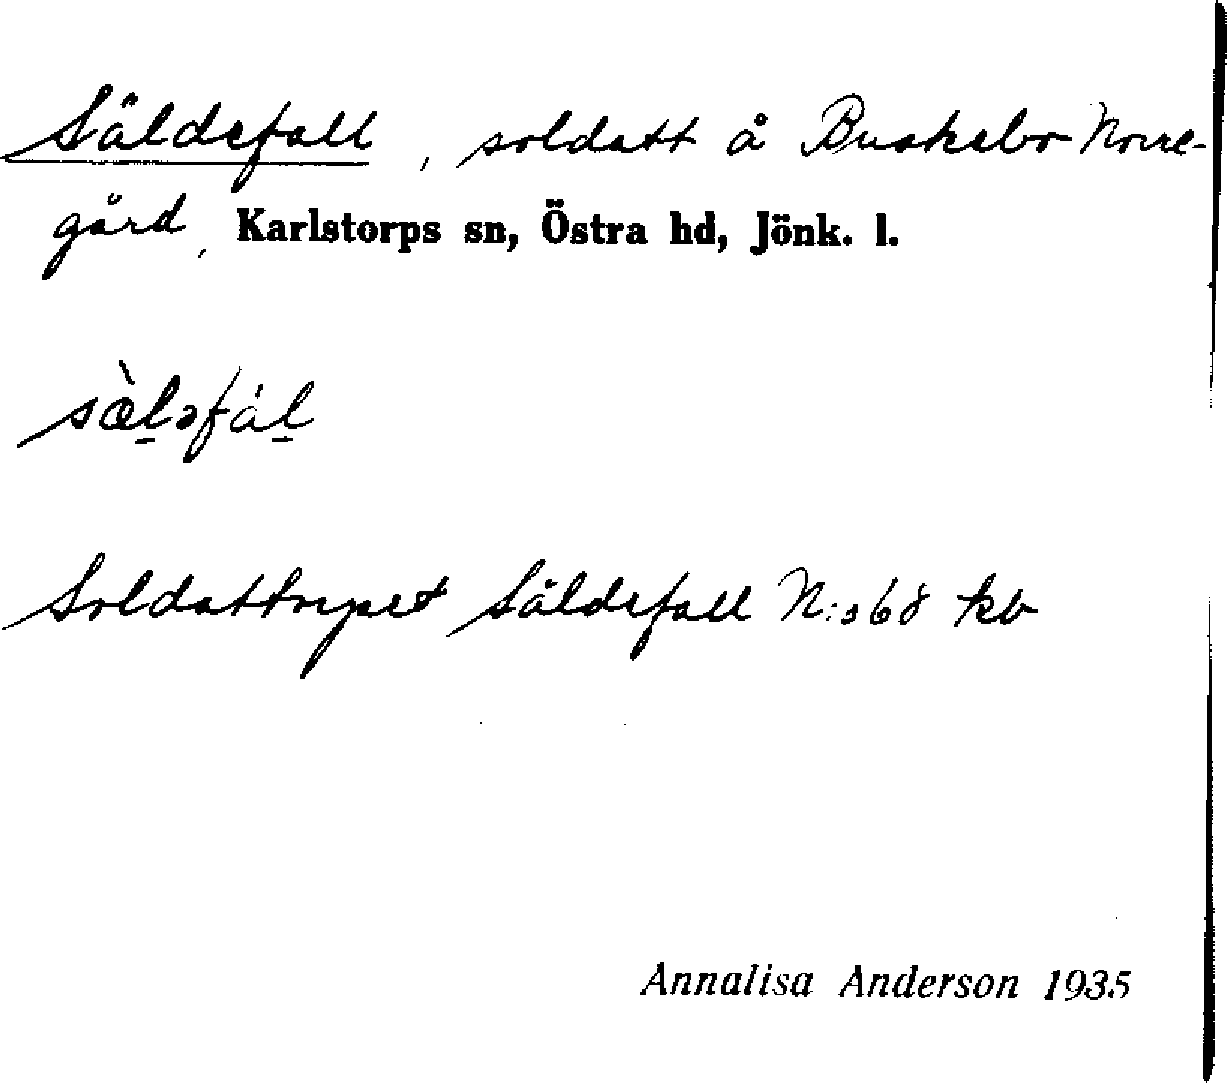 Säldefall, soldatt å Buskebo Norre-
gård, Karlstorps sn, Östra hd, Jönk. l.
sæ̀l̠əfál̠
Soldattorpet Säldefall N:o 68 kb
Annalisa Anderson 1935